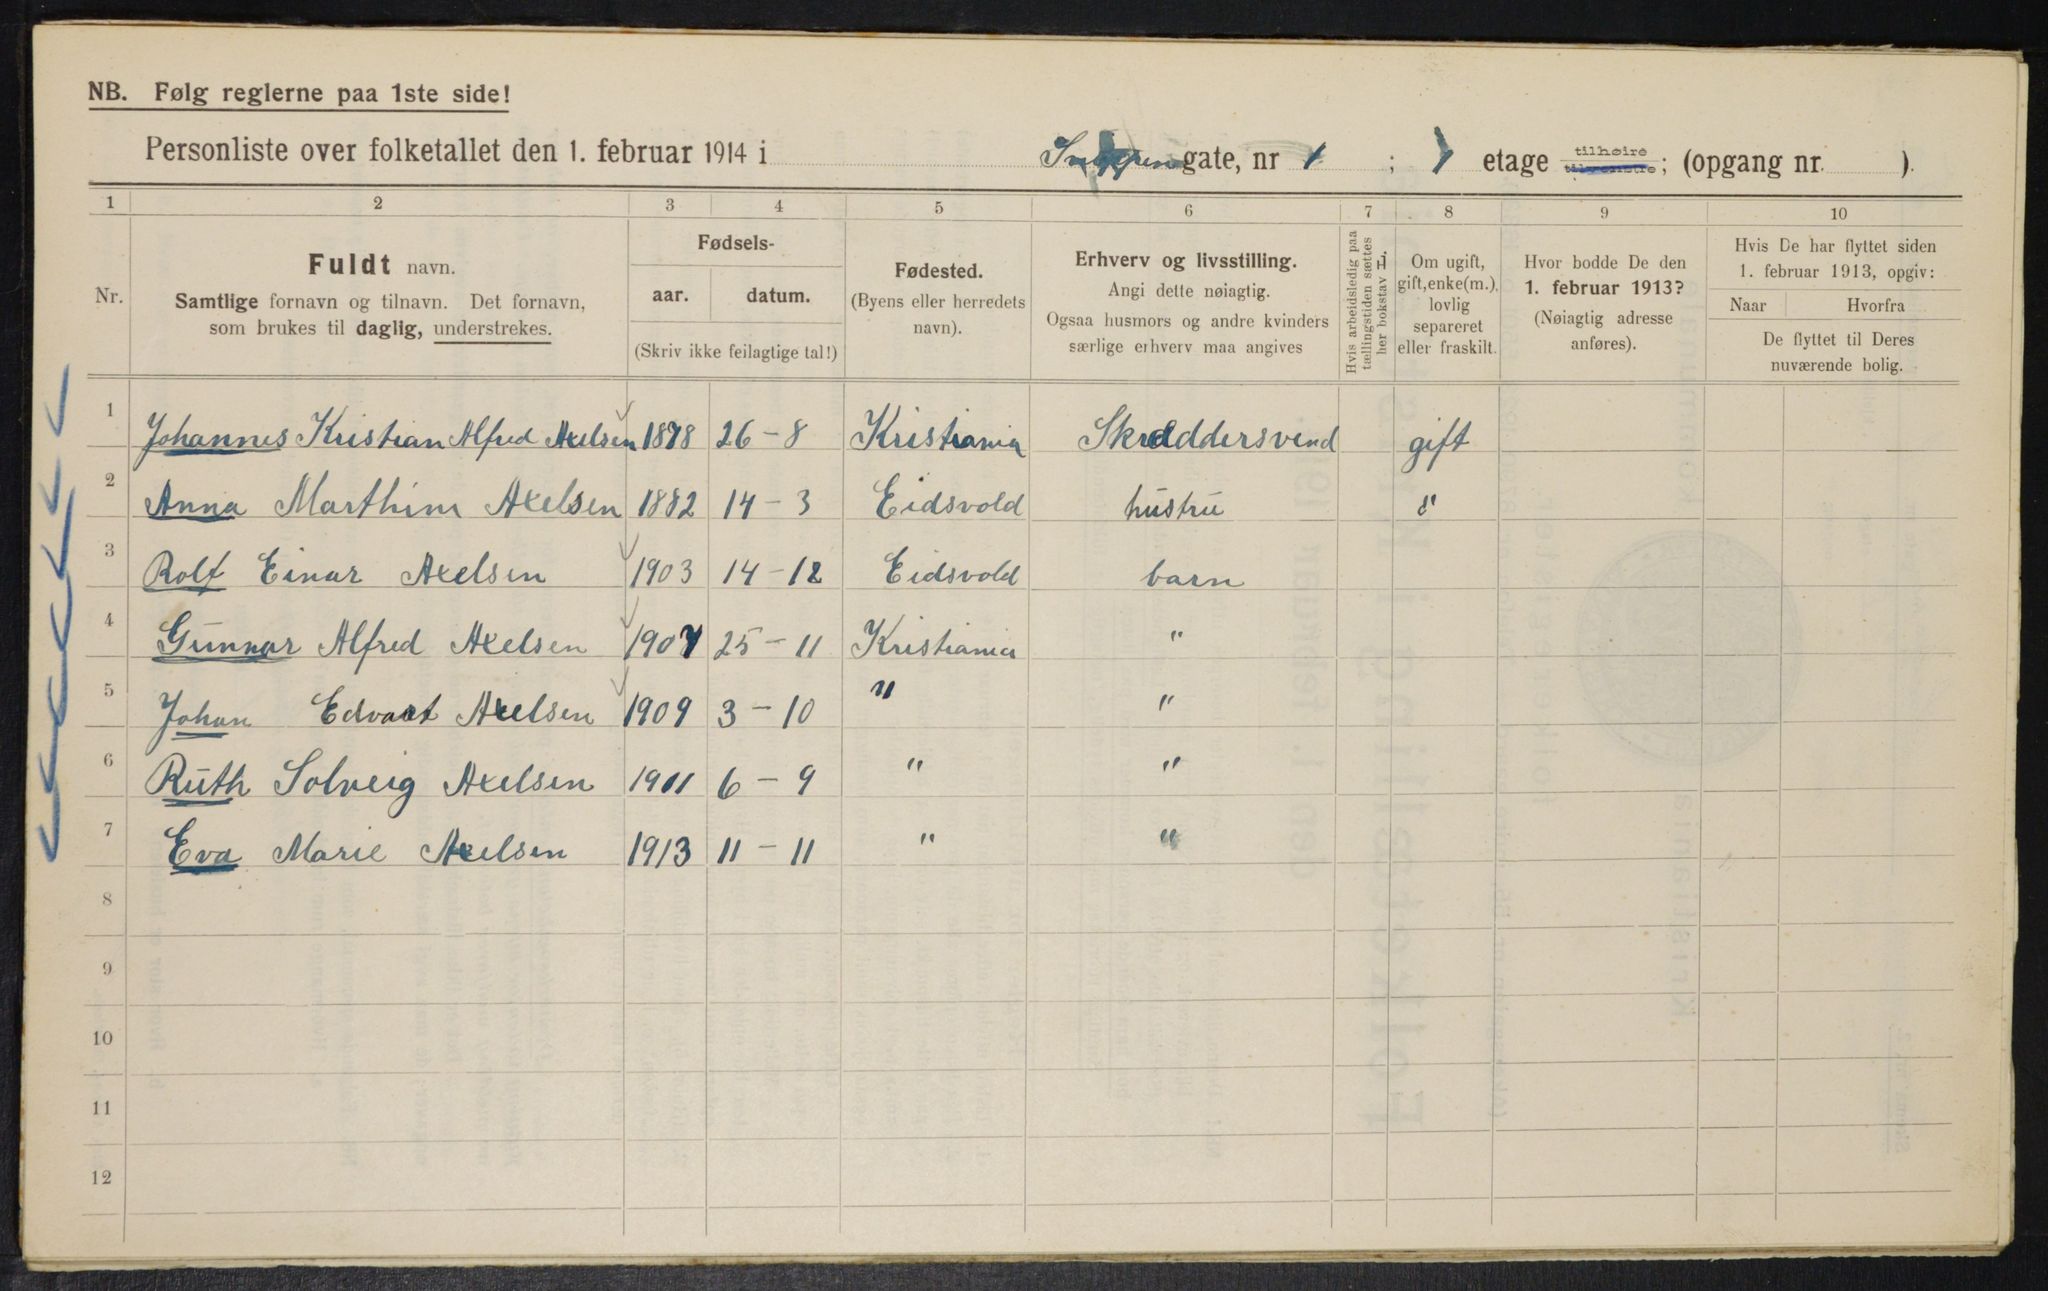 NB. Følg reglerne paa 1ste side!
Personliste over folketallet den 1. februar 1914 i gate, nr 1 ; 1 etage tilhøire tilvenstre; (opgang nr. ).
1 2 3 4 5 6 7 8 9 10
Nr.
Fuldt navn.
Samtlige fornavn og tilnavn. Det fornavn,
som brukes til daglig, understrekes.
Fødsels-
aar. datum.
(Skriv ikke feilagtige tal!)
Fødested.
(Byens eller herredets
navn).
Erhverv og livsstilling.
Angi dette nøiagtig.
Ogsaa husmors og andre kvinders
særlige erhverv maa angives
Hvis arbeidsledig paa
tællingstiden sættes
her bokstav L
Om ugift,
gift, enke(m.),
lovlig
separeret
eller fraskilt.
Hvor bodde De den
1. februar 1913?
(Nøiagtig adresse
anføres).
Hvis De har flyttet siden
1. februar 1913, opgiv:
Naar Hvorfra
De flyttet til Deres
nuværende bolig.
1 Johannes Kristian Alfred Axelsen 1878 26 - 8 Kristiania Skræddersvend gift
2 Anna Marthine Axelsen 1882 14 - 3 Eidsvold hustru "
3 Rolf Einar Axelsen 1903 14 - 12 Eidsvold barn
4 Gunnar Alfred Axelsen 1907 25 - 11 Kristiania "
5 Johan Edvart Axelsen 1909 3 - 10 " "
6 Ruth Solveig Axelsen 1911 6 - 9 " "
7 Eva Marie Axelsen 1913 11 - 11 " "
8
9
10
11
12